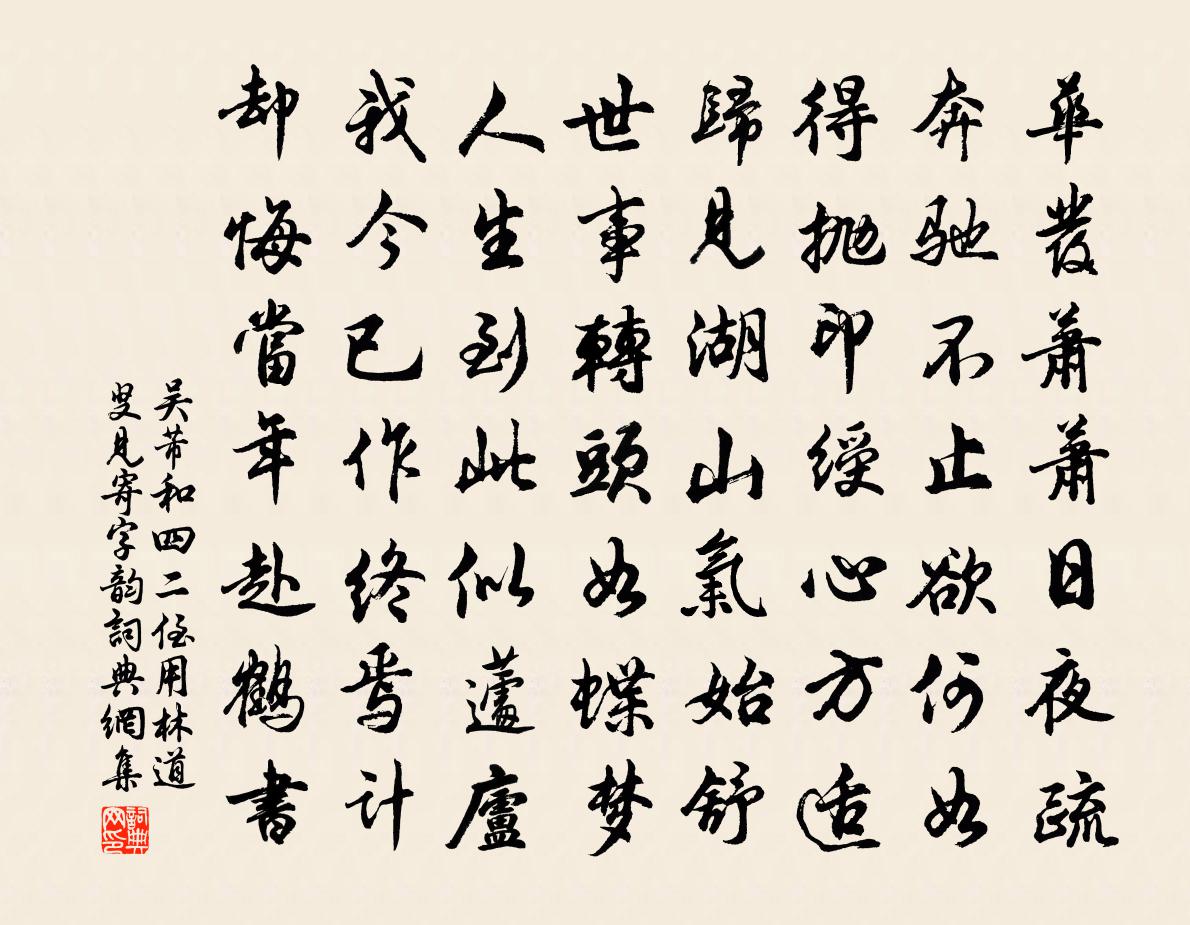 華發蕭蕭日夜疏
奔馳不止欲何如
得抛印綬心方适
歸見湖山氣始舒
世事轉頭如蝶梦
人生到此似蘧廬
我今已作终焉计
却悔當年赴鶴書
吴芾和四二侄用林道
叟見寄字韵詞典網集
詞典
网印